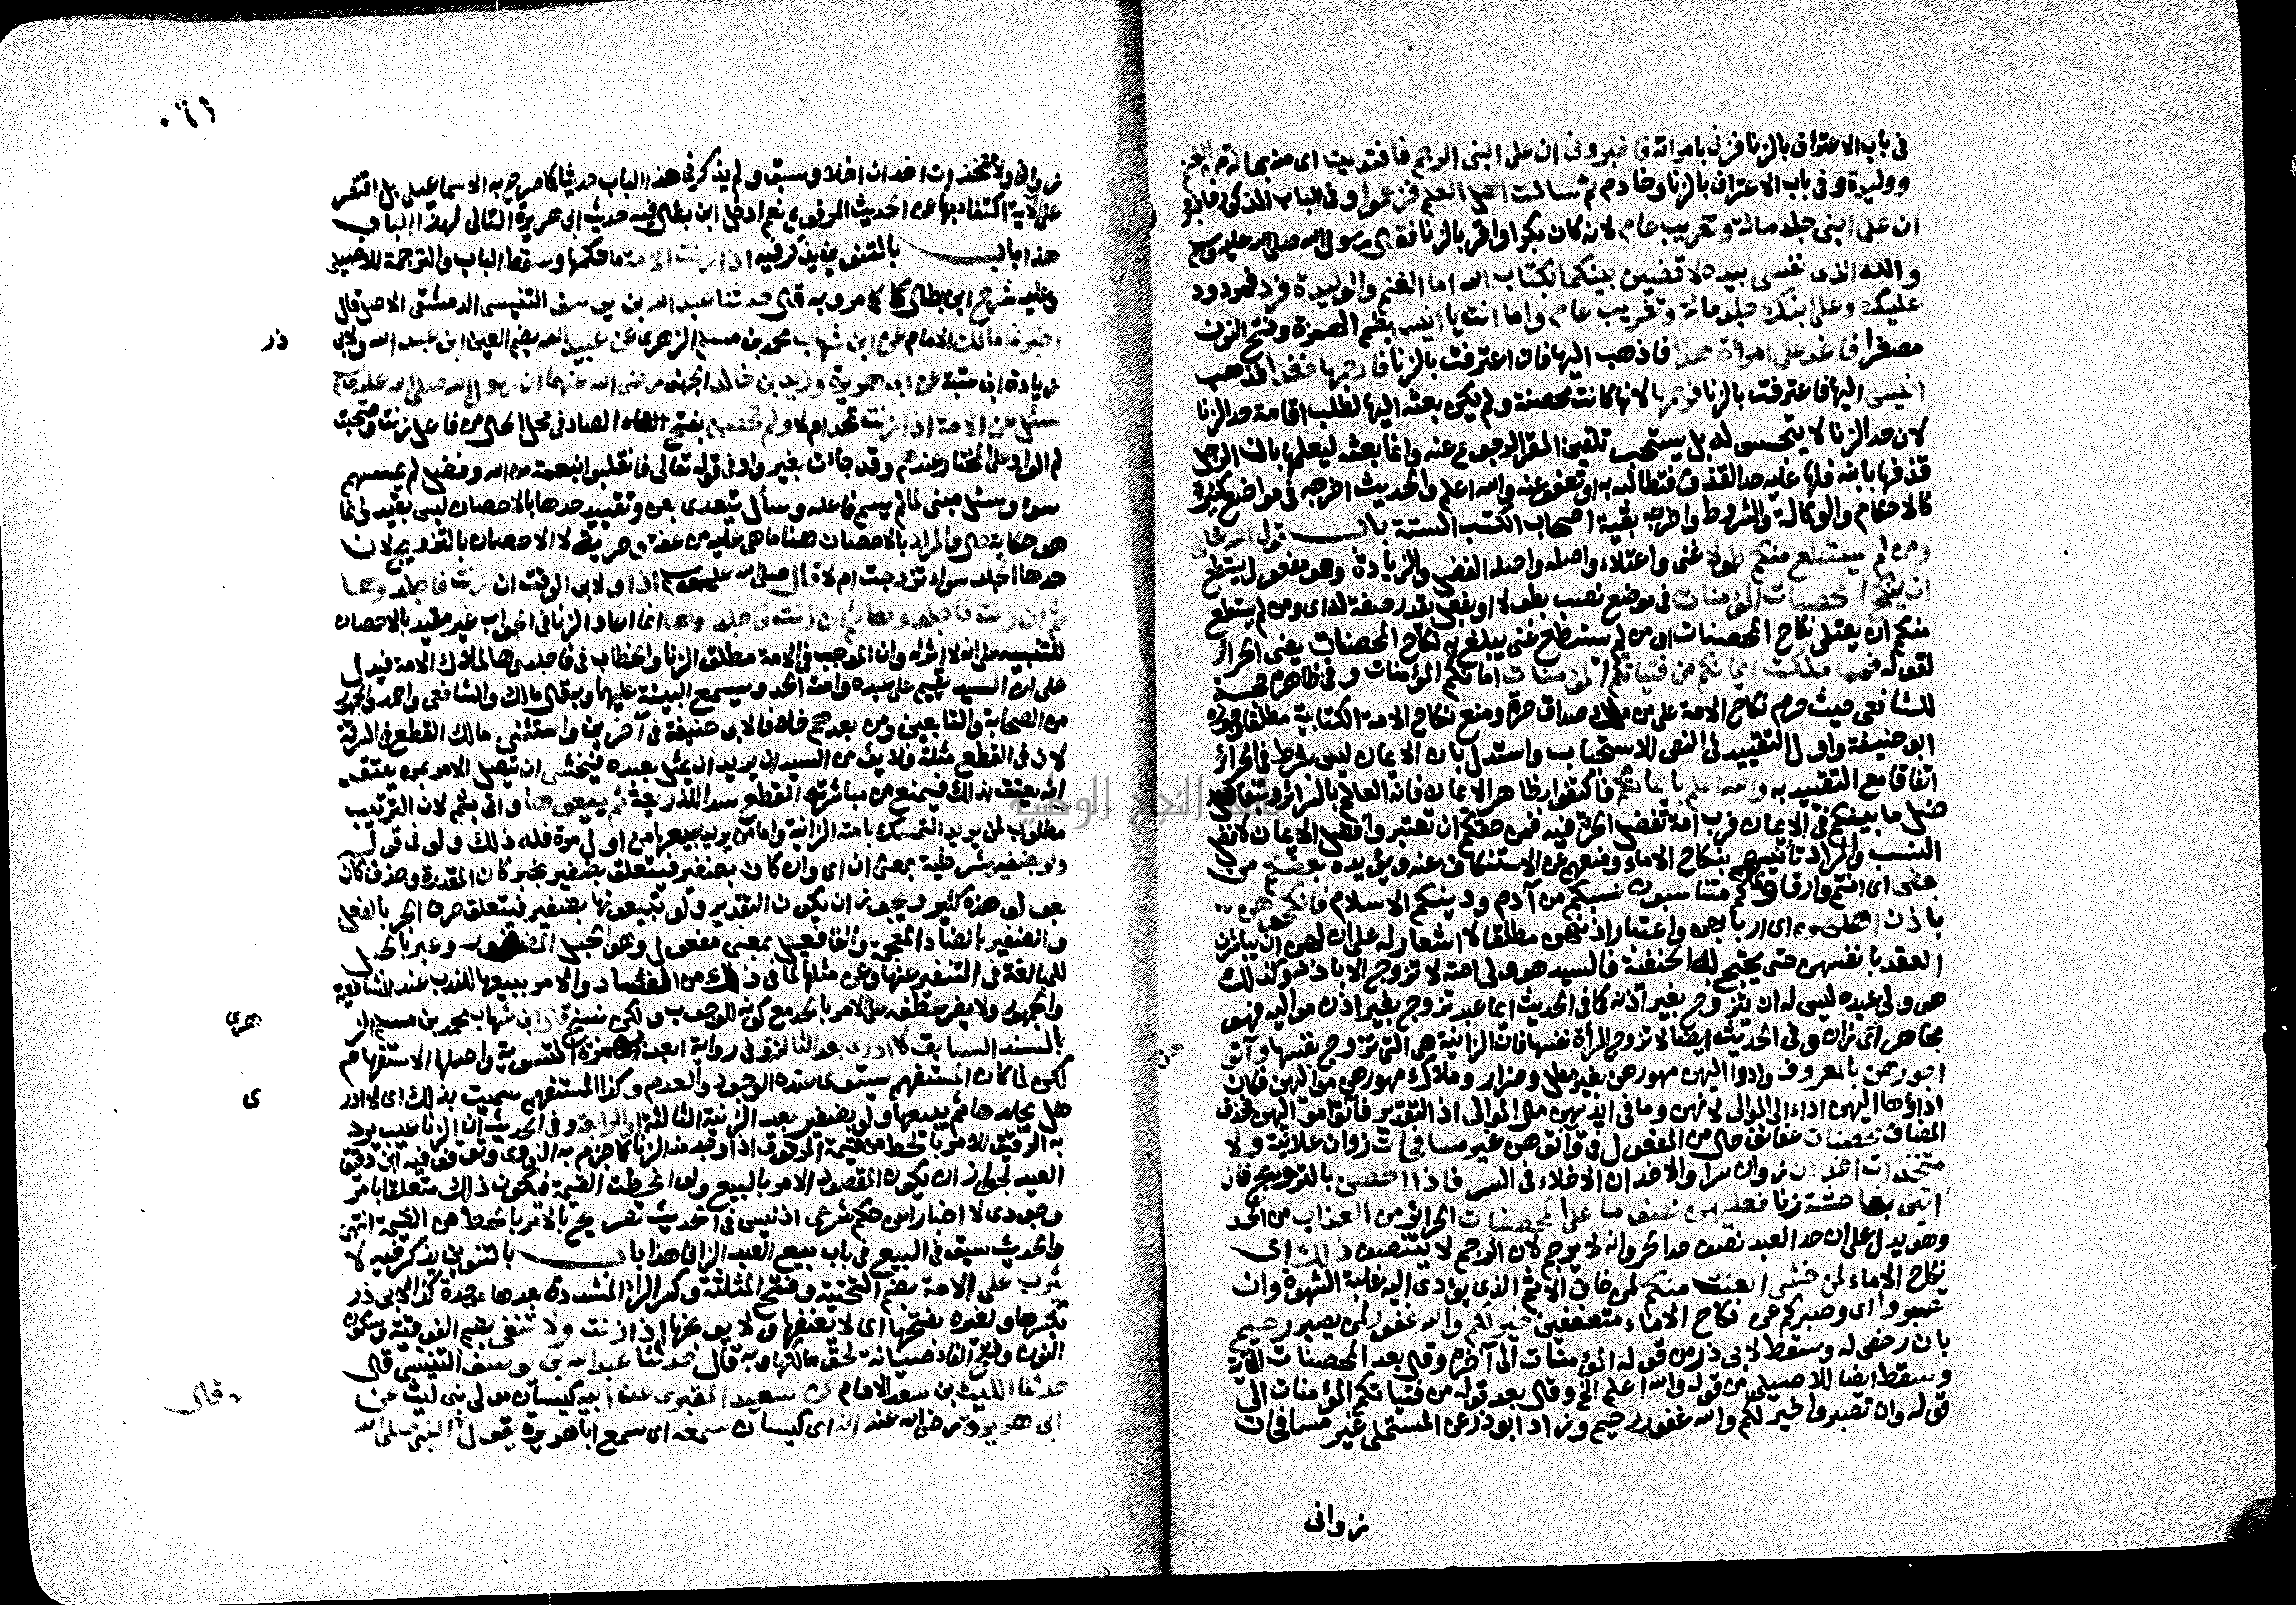 فى باب الاعتراف بالزنا فزنى بامراته فاخبرونى ان على ابنى الرجم فافتديت اى منه بمائة من الغنم
ووليدة وفى باب الاعتراف بالزنا وخادم ثم سالت اهل العلم فزعموا وفى الباب المذكور فاخبرونى
ان على ابنى جلد مائة وتغريب عام لانه كان بكرا واقر بالزنا فقال رسول الله صلى الله عليه وسلم
والله الذى نفسى بيده لاقضين بينكما بكتاب الله اما الغنم والوليدة فرد فمردود
عليك وعلى ابنك جلد مائة وتغريب عام واما انت يا انيس بضم الهمزة وفتح النون
مصغرا فاغد على امراة هذا فاذهب اليها فان اعترفت بالزنا فارجمها فغدا فذهب
انيس اليها فاعترفت بالزنا فرجمها لانها كانت محصنة ولم يكن بعثه اليها لطلب اقامة حد الزنا
لان حد الزنا لا يتجسس له بل يستحب تلقين المقر الرجوع عنه وانما بعثه ليعلمها بان الرجل
قذفها بابنه فلها عليه حد القذف فتطالبه به او تعفو عنه والله اعلم والحديث اخرجه فى مواضع كثيرة
كالاحكام والوكالة والشروط واخرجه بقية اصحاب الكتب الستة باب قول الله تعالى
ومن لم يستطع منكم طولا غنى واعتلاء واصله الفضل والزيادة وهو مفعول يستطع
ان ينكح المحصنات المؤمنات فى موضع نصب بطولا او بفعل يقدر صفة له اى ومن لم يستطع
منكم ان يعتلى نكاح المحصنات او من لم يستطع غنى يبلغ به نكاح المحصنات يعنى الحرائر
لقوله فمما ملكت ايمانكم من فتياتكم المؤمنات امائكم المؤمنات وفى ظاهره حجة
للشافعى حيث حرم نكاح الامة على من ملك صداق حرة ومنع نكاح الامة الكتابية مطلقا وجوزه
ابو حنيفة واول التقييد فى النص للاستحباب واستدل بان الايمان ليس بشرط فى الحرائر
اتفاقا مع التقييد به والله اعلم بايمانكم فاكتفوا بظاهر الايمان فانه العالم بالسرائر وبتفاضل
ما بينكم فى الايمان فرب امة تفضل الحرة فيه فمن حقكم ان تعتبروا فضل الايمان لا فضل
النسب والمراد تأنيسهم بنكاح الاماء ومنعهم عن الاستنكاف عنه ويؤيده بعضكم من
بعض اى انتم وارقاؤكم متناسبون نسبكم من آدم ودينكم الاسلام فانكحوهن
باذن اهلهن اى اربابهن واعتبار اذنهم مطلقا لا اشعار له على ان لهن ان يباشرن
العقد بانفسهن حتى يحتج به الحنفية فالسيد هو ولى امته لا تزوج الا باذنه وكذلك
هو ولى عبده ليس له ان يتزوج بغير اذنه كما فى الحديث ايما عبد تزوج بغير اذن مواليه فهو
عاهر اى زان وفى الحديث ايضا لا تزوج المرأة نفسها فان الزانية هى التى تزوج نفسها وآتو
هن
اجورهن بالمعروف وادوا اليهن مهورهن بغير مطل وضرار وملاك مهورهن مواليهن فكان
اداؤها اليهن اداء الى الموالى لانهن وما فى ايديهن مال الموالى اذ التقدير فآتوا مواليهن فحذف
المضاف محصنات عفائف حال من المفعول فى وآتوهن غير مسافحات زوان علانية ولا
متخذات اخدان زوان سرا والاخدان الاخلاء فى السر فاذا احصن بالتزويج فان
اتين بفاحشة زنا فعليهن نصف ما على المحصنات الحرائر من العذاب من الحد
وهو يدل على ان حد العبد نصف حد الحر وانه لا يرجم لان الرجم لا يتنصف ذلك اى
نكاح الاماء لمن خشى العنت منكم لمن خاف الاثم الذى يؤدى اليه غلبة الشهوة وان
تصبروا اى وصبركم عن نكاح الاماء متعففين خير لكم والله غفور لمن يصبر رحيم
بان رخص له وسقط لابى ذر من قوله المؤمنات الى آخره وقال بعد المحصنات الآية
وسقط ايضا للاصيلى من قوله والله اعلم الخ وقال بعد قوله من فتياتكم المؤمنات الى
قوله وان تصبروا خير لكم والله غفور رحيم وزاد ابو ذر عن المستملى غير مسافحات
زوانى
زوانى ولا متخذات اخدان اخلاء وسبق ولم يذكر فى هذا الباب حديثا كما صرح به الاسماعيلى بل اقتصر
على الآية اكتفاء بها عن الحديث المرفوع نعم ادخل ابن بطال فيه حديث ابى هريرة التالى لهذا الباب
هذا باب بالتنوين يذكر فيه اذا زنت الامة ما حكمها وسقط الباب والترجمة للاصيلى
وعليه شرح ابن بطال كما مر وبه قال حدثنا عبد الله بن يوسف التنيسى الدمشقى الاصل قال
اخبرنا مالك الامام عن ابن شهاب محمد بن مسلم الزهرى عن عبيد الله بضم العين ابن عبد الله ولابى
ذر
زيادة ابن عتبة عن ابى هريرة وزيد بن خالد الجهنى رضى الله عنهما ان رسول الله صلى الله عليه وسلم
سئل عن الامة اذا زنت تحد ام لا ولم تحصن بفتح الصاد فى محل الحال من فاعل زنت وصحبت
لم الواو على المختار عندهم وقد جاءت بغير واو فى قوله تعالى فانقلبوا بنعمة من الله وفضل لم يمسسهم
سوء وسئل مبنى لما لم يسم فاعله وسأل يتعدى بعن وتقييد حدها بالاحصان ليس بقيد وانما
هو حكاية حال والمراد بالاحصان هنا ما هى عليه من عفة وحرية لا الاحصان بالتزويج لان
حدها الجلد سواء تزوجت ام لا قال صلى الله عليه وسلم اذا ولابى الوقت ان زنت فاجلدوها
ثم ان زنت فاجلدوها ثم ان زنت فاجلدوها انما اعاد الزنا فى الجواب غير مقيد بالاحصان
للتنبيه على انه لا اثر له وان الموجب فى الامة مطلق الزنا والخطاب فى فاجلدوها لملاك الامة فيدل
على ان السيد يقيم على عبده وامته الحد ويسمع البينة عليهما وبه قال مالك والشافعى واحمد والجمهور
من الصحابة والتابعين ومن بعدهم خلافا لابى حنيفة فى آخرين واستثنى مالك القطع فى السرقة
لان فى القطع مثلة فلا يؤمن السيد ان يريد ان يمثل بعبده فيخشى ان يتصل الامر بمن يعتقد
انه يعتق بذلك فيمنع من مباشرته القطع سدا للذريعة ثم بيعوها واتى بثم لان الترتيب
مطلوب لمن يريد التمسك بامته الزانية واما من يريد بيعها من اول مرة فله ذلك ولو فى قوله
ولو بضفير شرطية بمعنى ان اى وان كان بضفير فيتعلق بضفير بخبر كان المقدرة وحذف كان
بعد لو هذه كثير ويجوز ان يكون التقدير ولو تبيعونها بضفير فيتعلق حرف الجر بالفعل
والضفير بالضاد المعجمة والفاء فعيل بمعنى مفعول وهو الحبل المضفور وعبر بالحبل
للمبالغة فى التنفير عنها وعن مثلها لما فى ذلك من الفساد والامر ببيعها للندب عند الشافعية
والجمهور ولا يضر عطفه على الامر بالحد مع كونه للوجوب ولكن نسخ قال ابن شهاب محمد بن مسلم الز
هرى
بالسند السابق لا ادرى بعد الثالثة وفى رواية ابعد بهمزة التسوية واصلها الاستفهام
لكن لما كان المستفهم يستوى عنده الوجود والعدم وكذا المستفهم سميت بذلك اى لا ادر
ى
هل يجلدها ثم يبيعها ولو بضفير بعد الزنية الثالثة او الرابعة وفى الحديث ان الزنا عيب يرد
به الرقيق للامر بالحط من قيمة المرقوق اذا وجد منه الزنا كما جزم به النووى وتوقف فيه ابن دقيق
العيد لجواز ان يكون المقصود الامر بالبيع ولو انحطت القيمة فيكون ذلك متعلقا بامر
وجودى لا اخبارا عن حكم شرعى اذ ليس فى الحديث تصريح بالامر بالحط من القيمة انتهى
والحديث سبق فى البيع فى باب بيع العبد الزانى هذا باب بالتنوين يذكر فيه لا
يثرب على الامة بضم التحتية وفتح المثلثة وكسر الراء المشددة بعدها موحدة كذا لابى ذر
بكسرها ولغيره بفتحها اى لا يعنفها ولا يوبخها اذا زنت ولا تنفى بضم الفوقية وسكون
النون وفتح الفاء صيانة لحق مالكها وبه قال حدثنا عبد الله بن يوسف التنيسى قال
حدثنا الليث بن سعد الامام عن سعيد المقبرى عن ابيه كيسان مولى بنى ليث عن
ابى هريرة رضى الله عنه انه اى كيسان سمعه اى سمع ابا هريرة يقول النبى صلى الله
قال
النجاح الوطنية